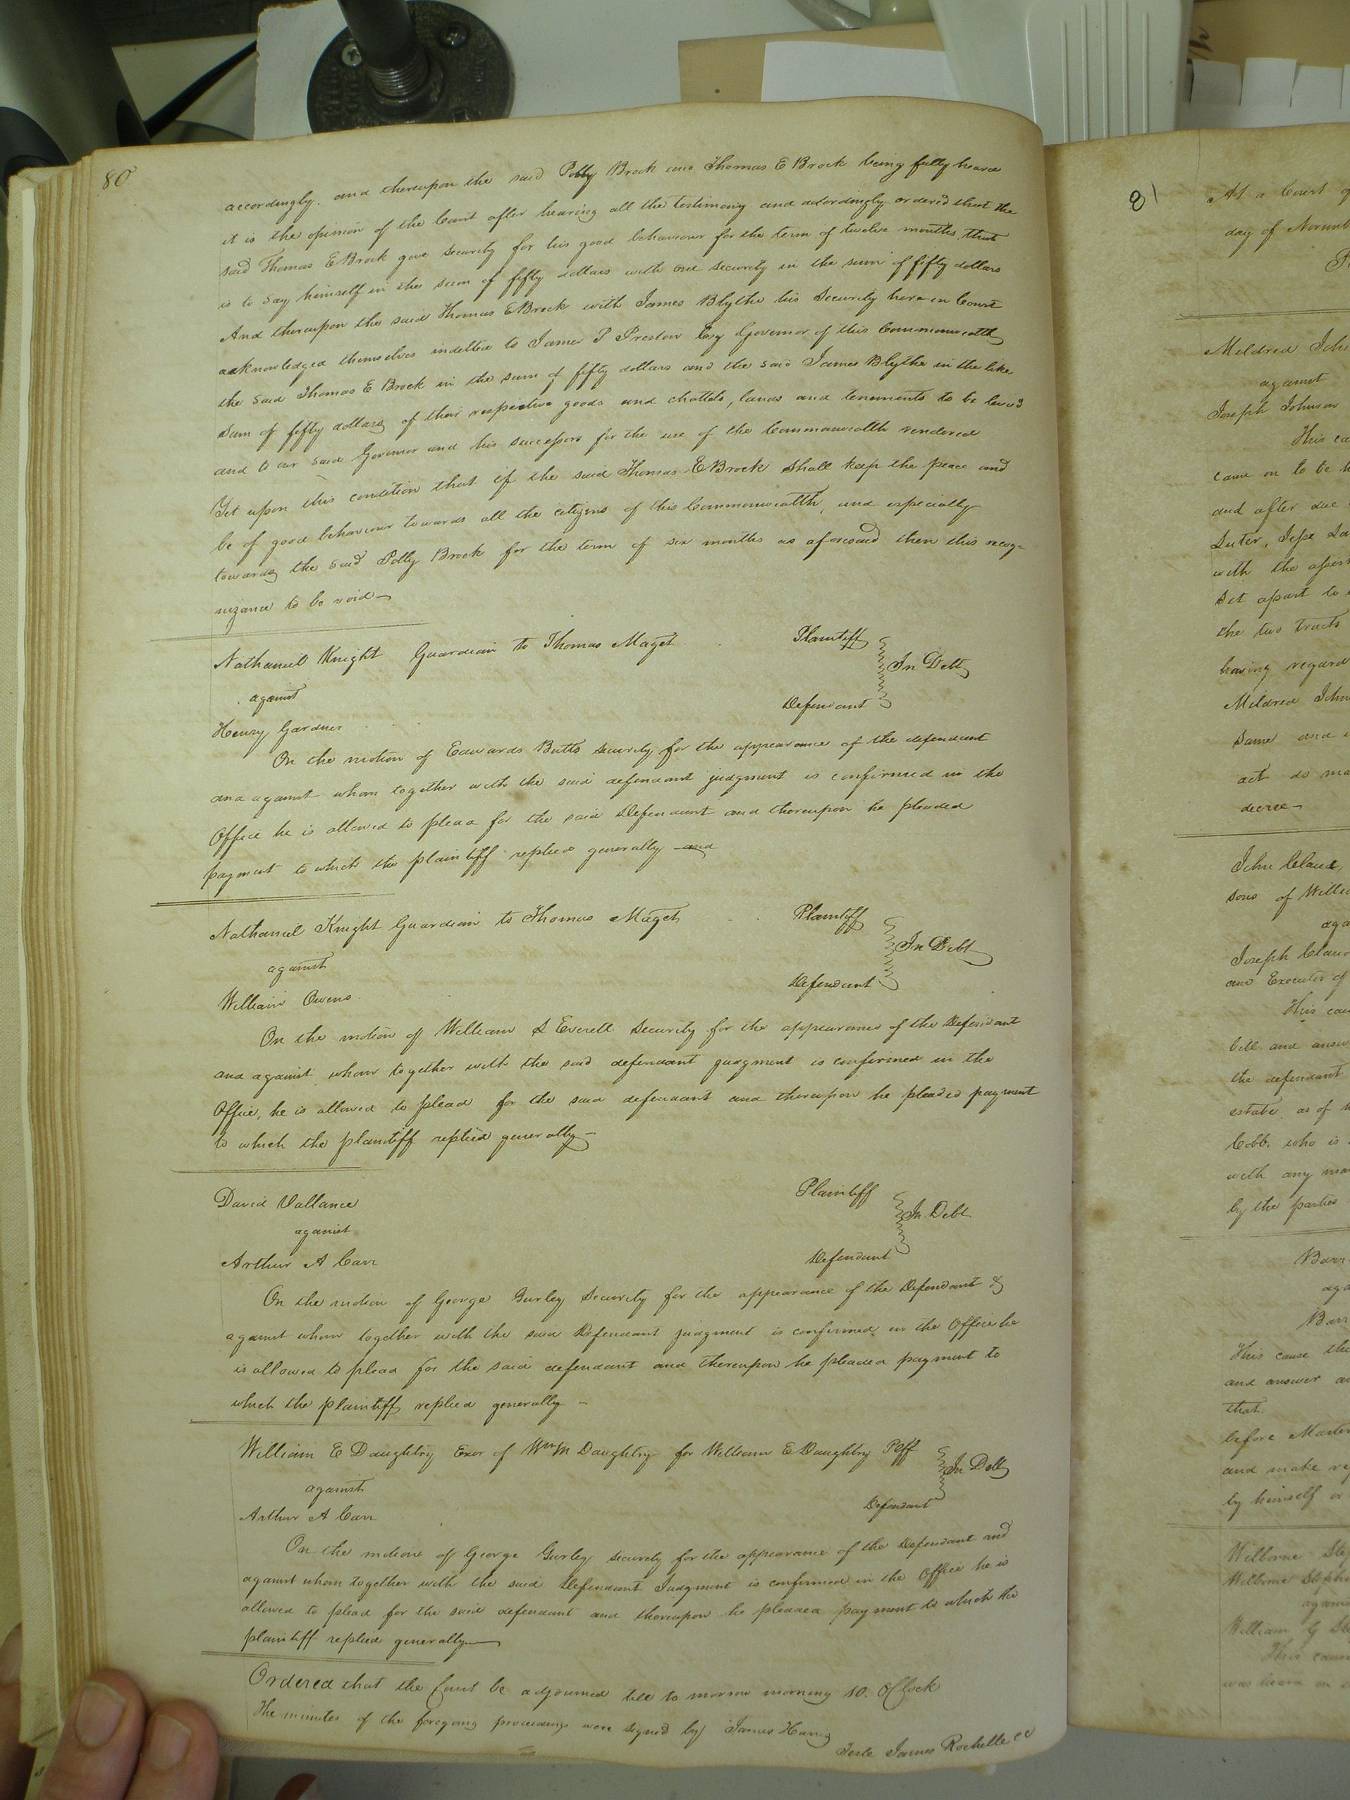 80
accordingly. and thereupon the said Polly Brock and Thomas E Brock being fully heard
it is the opinion of the Court after hearing all the testimony and accordingly ordered that the
said Thomas E Brock give security for his good behaviour for the term of twelve months, that
is to say himself in the sum of fifty dollars with one security in the sum of fifty dollars
And thereupon the said Thomas E Brock with James Blythe his Security here in Court
acknowledged themselves indebted to James P Preston Esq Governor of this Commonwealth
the said Thomas E Brock in the sum of fifty dollars and the said James Blythe in the like
sum of fifty dollars of their respective goods and chattels, lands and tenements to be levied
and to our said Governor and his successors for the use of the Commonwealth rendered
Yet upon this condition that if the said Thomas E Brock shall keep the peace and
be of good behaviour towards all the citizens of this Commonwealth, and especially
towards the said Polly Brock for the term of six months as aforesaid then this recog-
nizance to be void—
Nathaniel Knight Guardian to Thomas Maget Plaintiff
against In Debt
Henry Gardner Defendant
On the motion of Edwards Butts security for the appearance of the defendant
and against whom together with the said defendant judgment is confirmed in the
Office he is allowed to plead for the said Defendant and thereupon he pleaded
payment to which the plaintiff replied generally and
Nathaniel Knight Guardian to Thomas Maget Plaintiff
against In Debt
William Owens Defendant
On the motion of William S Everell Security for the appearance of the Defendant
and against whom together with the said defendant judgment is confirmed in the
Office, he is allowed to plead for the said defendant and thereupon he pleaded payment
to which the plaintiff replied generally—
David Vallance Plaintiff
against In Debt
Arthur A Carr Defendant
On the motion of George Gurley Security for the appearance of the Defendant &
against whom together with the said Defendant judgment is confirmed in the Office he
is allowed to plead for the said defendant and thereupon he pleaded payment to
which the plaintiff replied generally —
William E Daughtry Exor of Wm M Daughtry for William E Daughtry Plff
against In Debt
Arthur A Carr Defendant
On the motion of George Gurley security for the appearance of the Defendant and
against whom together with the said Defendant Judgment is confirmed in the Office he is
allowed to plead for the said defendant and thereupon he pleaded payment to which the
plaintiff replied generally—
Ordered that the Court be adjourned till to morrow morning 10. OClock
The minutes of the foregoing proceedings were signed by James Harris
Teste James Rochelle CC
81
At a Court
day of
Mildred
against
Joseph Johnson
This
came on to be
and after due
with the
set apart to
the two tracts
having regard
Mildred
same and
act do
decree—
John
sons of
Joseph
and Executor of
This
bill and
the defendant
estate as of
Cobb. who is
with any
by the parties
This cause
and answer
that
before
and make
by himself or
William G
This cause
was heard on